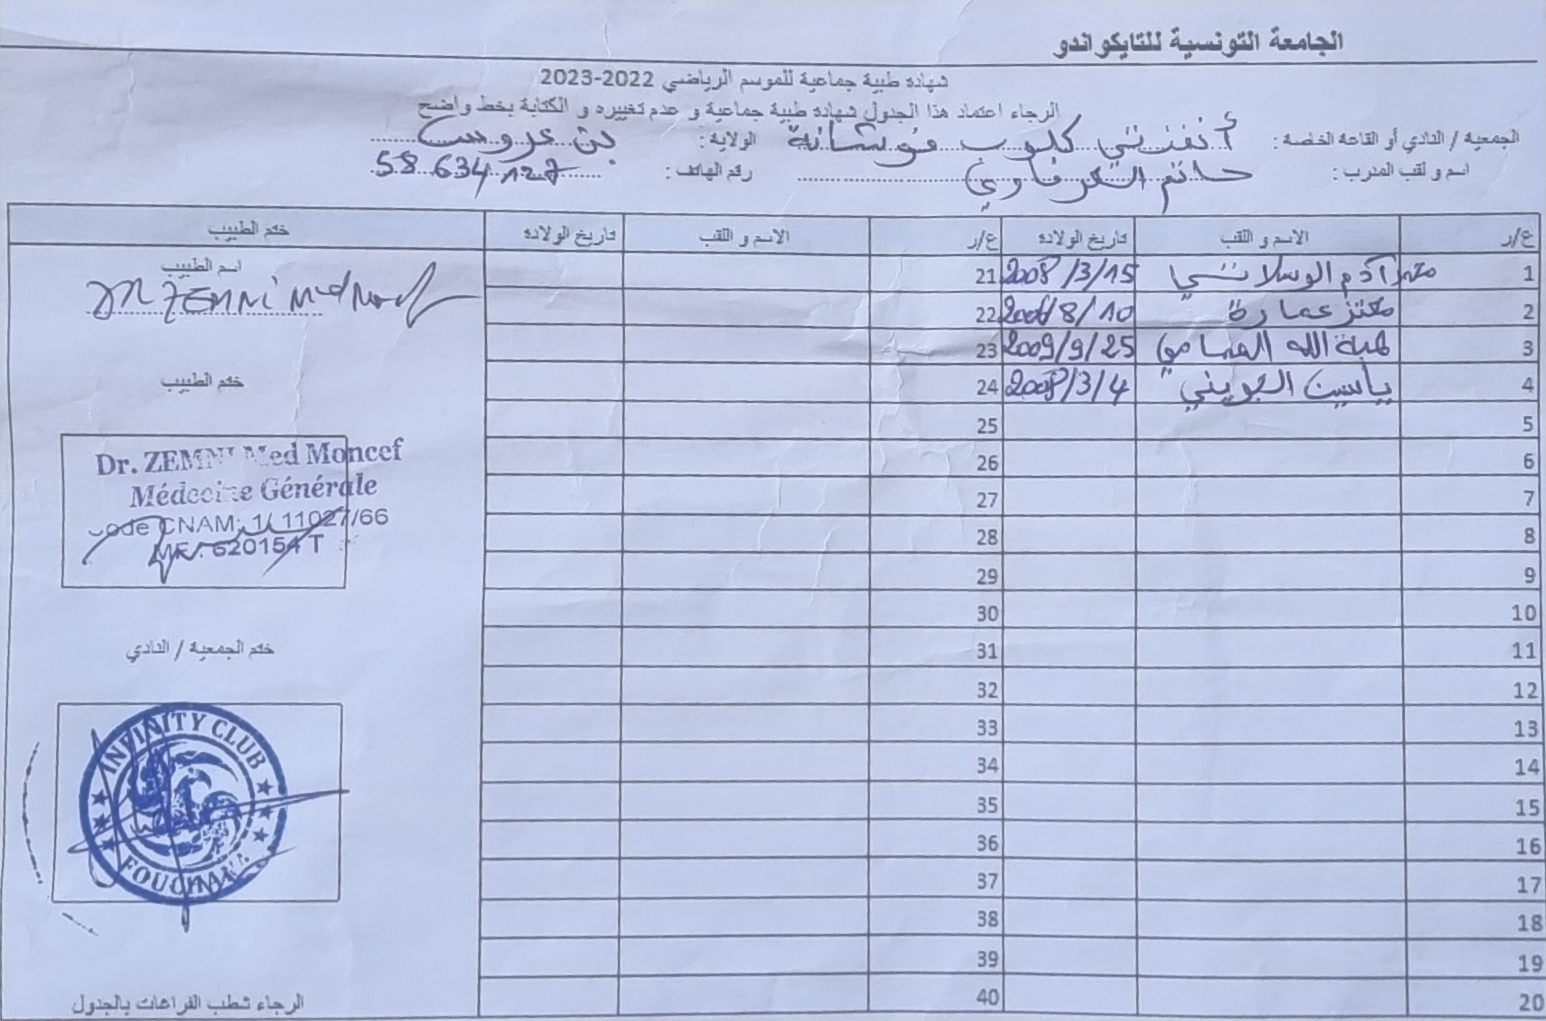 الجامعة التونسية للتايكواندو
شهادة طبية جماعية للموسم الرياضي 2022-2023
الرجاء اعتماد هذا الجدول شهادة طبية جماعية و عدم تغييره و الكتابة بخط واضح
الجمعية / النادي أو القاعة الخاصة : أنفنتي كلوب فوشانة الولاية : بن عروس
اسم و لقب المدرب : حاتم رقم الهاتف : 58 634 127
ع/ر الاسم و اللقب تاريخ الولادة ع/ر الاسم و اللقب تاريخ الولادة ختم الطبيب
1 آدم الوسلاتي 2008/3/15 21
2 معتز عمارة 10/8/ 22
3 هبة الله 2009/9/25 23
4 ياسين الجويني 2008/3/4 24
5 25
6 26
7 27
8 28
9 29
10 30
11 31
12 32
13 33
14 34
15 35
16 36
17 37
18 38
19 39
20 40
اسم الطبيب
Dr ZEMNI Med
ختم الطبيب
Dr. ZEMNI Med Moncef
Médecine Générale
Code CNAM: 1/ 11027/66
620154 T
ختم الجمعية / النادي
INFINITY CLUB
FOUCHANA
الرجاء شطب الفراغات بالجدول